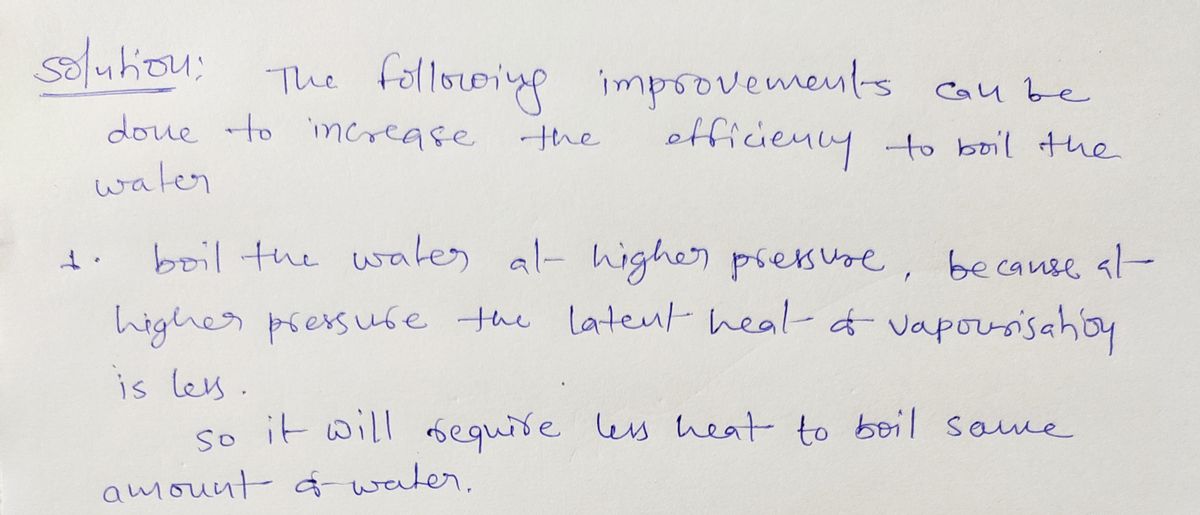 solution: The following improvements can be
done to increase the efficiency to boil the
water
1. boil the water at higher pressure, because at
higher pressure the latent heat of vapourisation
is less.
so it will require less heat to boil same
amount of water.